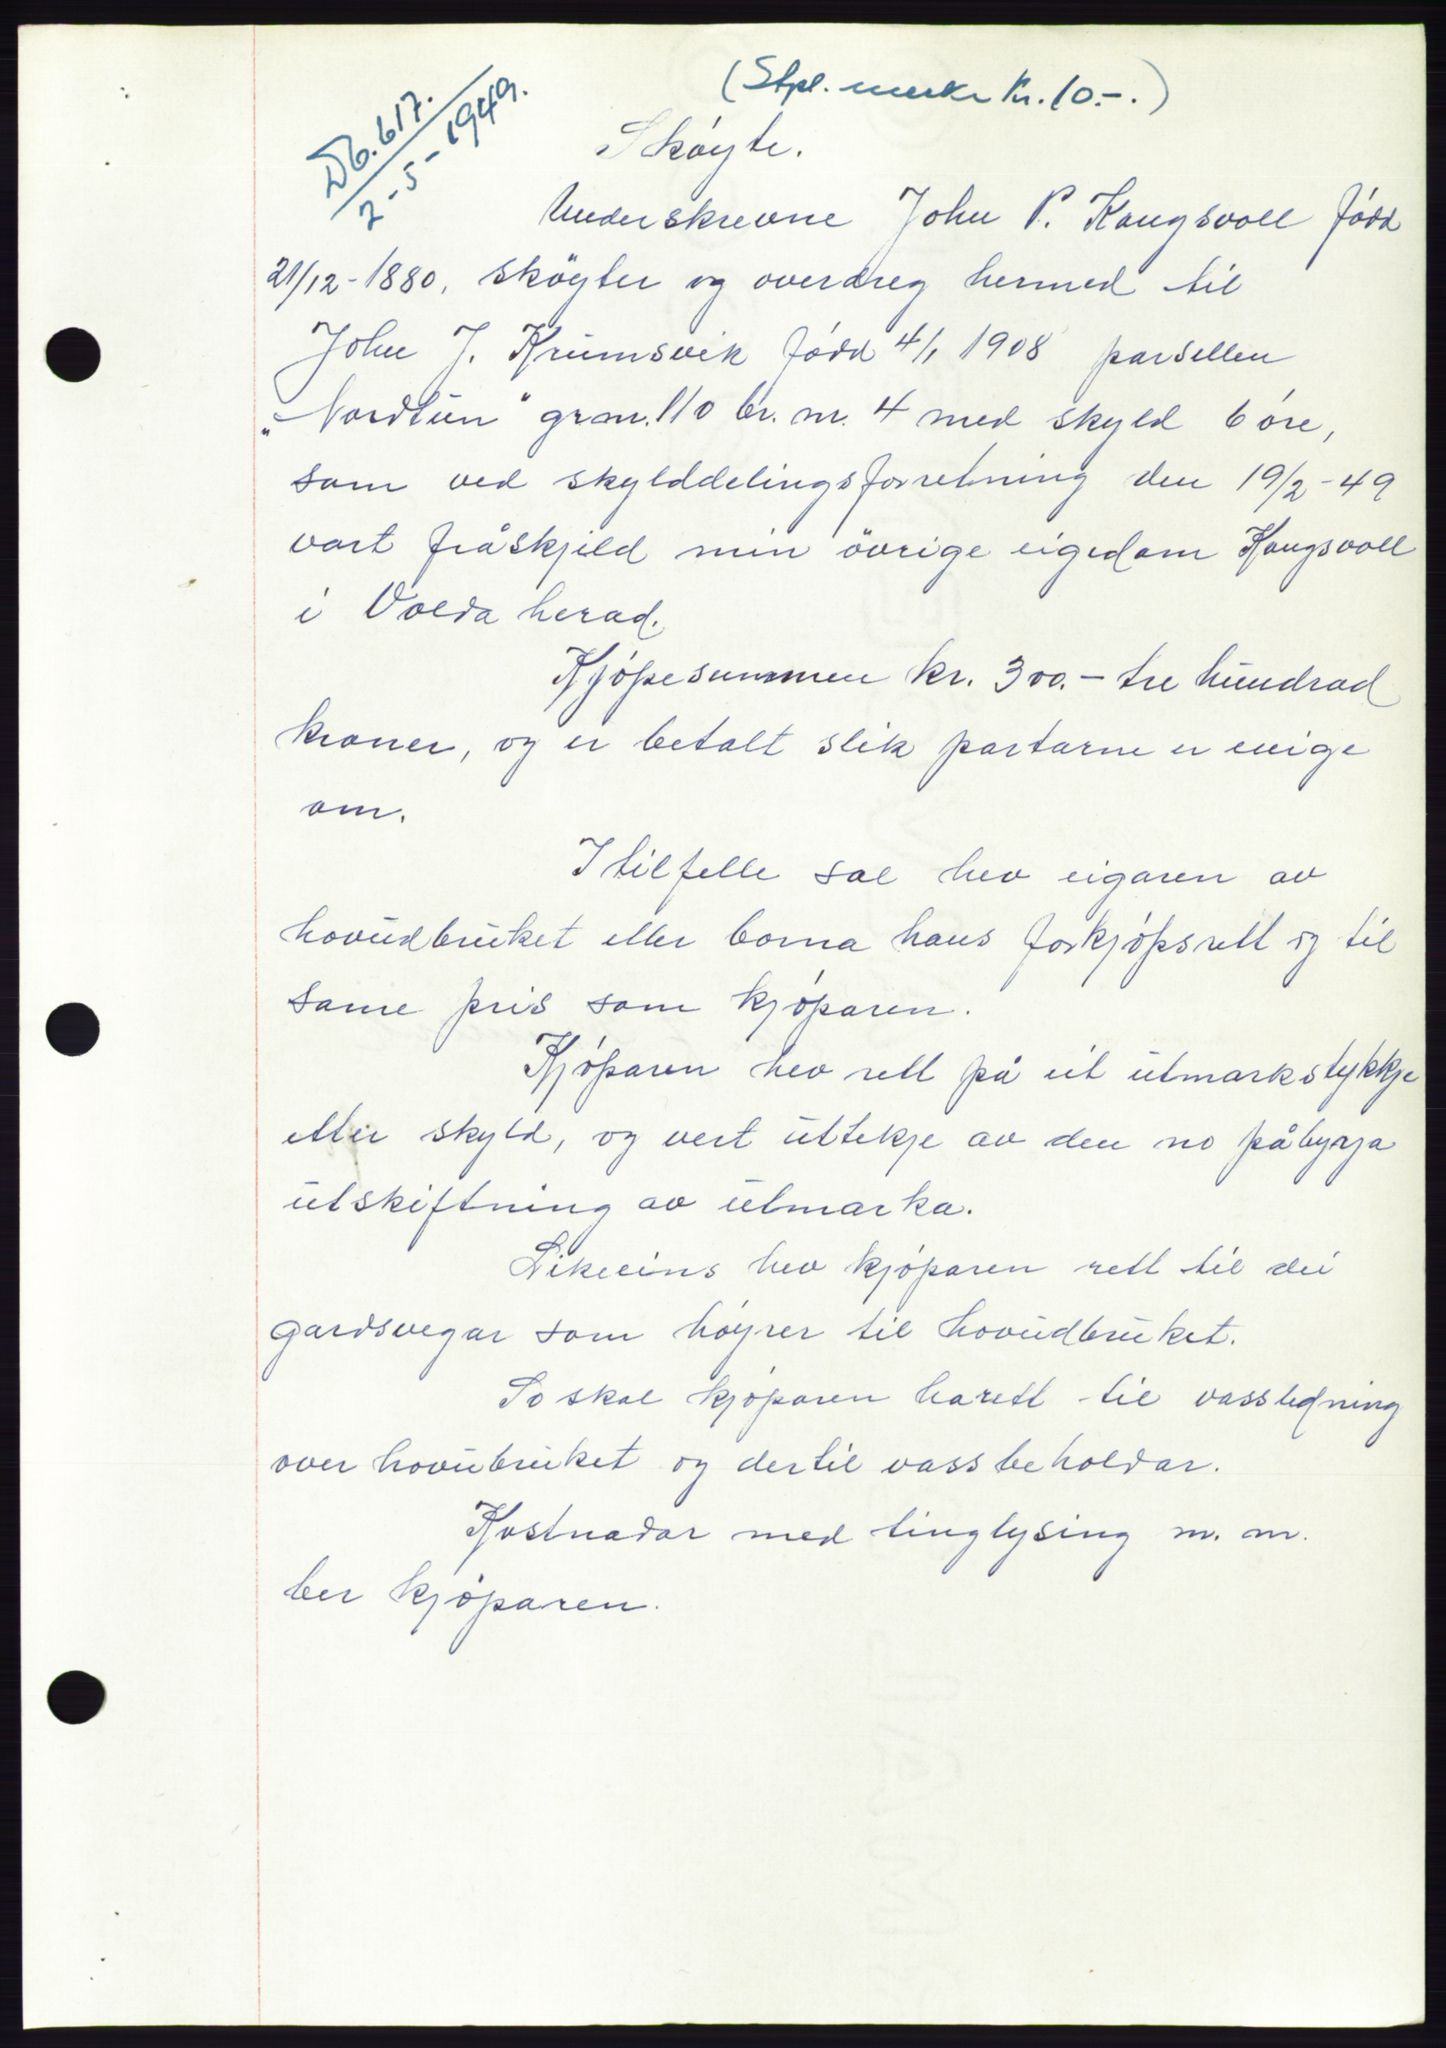 (Stpl. merke Kr. 10.-.)
Db. 617.
2-5-1949.
Skøyte.
Underskrevne John P. Kongsvoll fødd
21/12-1880, skøyter og overdreg hermed til
John J. Krumsvik fødd 4/1 1908 parsellen
„Nordtun" grn. 110 br. nr. 4 med skyld 6 øre,
som ved skylddelingsforretning den 19/2-49
vart fråskjeld min övrige eigedom Kongsvoll
i Volda herad.
Kjøpesummen kr. 300.- tre hundrad
kroner, og er betalt slik partarne er enige
om.
I tilfelle sal hev eigaren av
hovudbruket eller borna hans forkjøpsrett og til
same pris som kjøparen.
Kjøparen hev rett på eit utmarkstykkje
etter skyld, og vert uttekje av den no påbyrja
utskiftning av utmarka.
Likeeins hev kjøparen rett til dei
gardsvegar som høyrer til hovudbruket.
So skal kjøparen ha rett til vassledning
over hovubruket og dertil vassbeholdar.
Kostnadar med tinglysing m. m.
ber kjøparen.